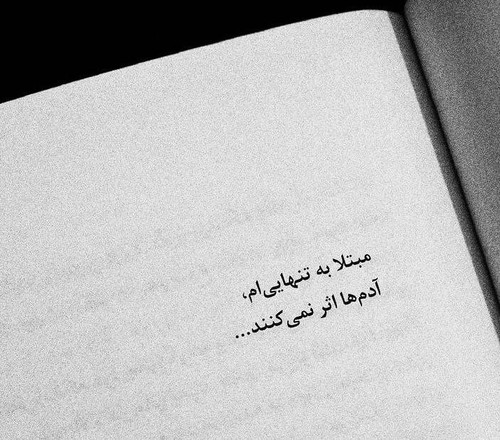 مبتلا به تنهایی‌ام،
آدم‌ها اثر نمی‌کنند...